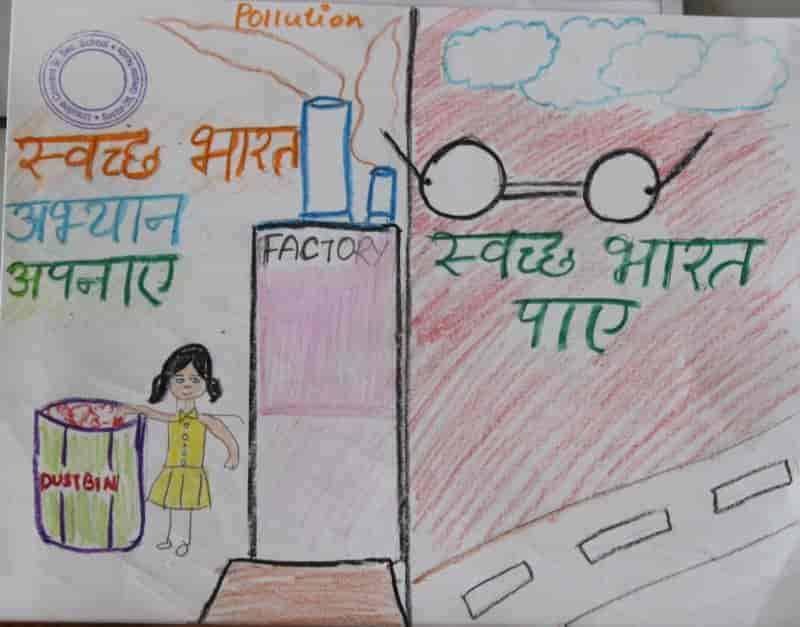 Pollution
स्वच्छ भारत
अभ्यान
अपनाए
FACTORY
DUSTBIN
स्वच्छ भारत
पाए